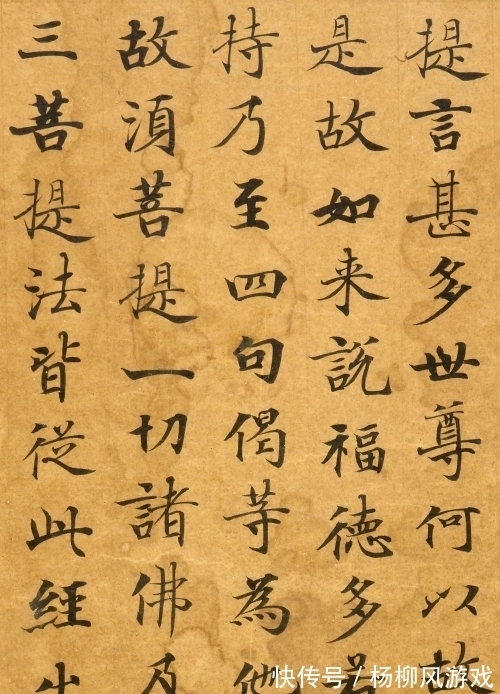 提言甚多世尊何以故
是故如来說福德多若
持乃至四句偈等為他
故湏菩提一切諸佛及
三菩提法皆從此經出
快传号 / 杨柳风游戏